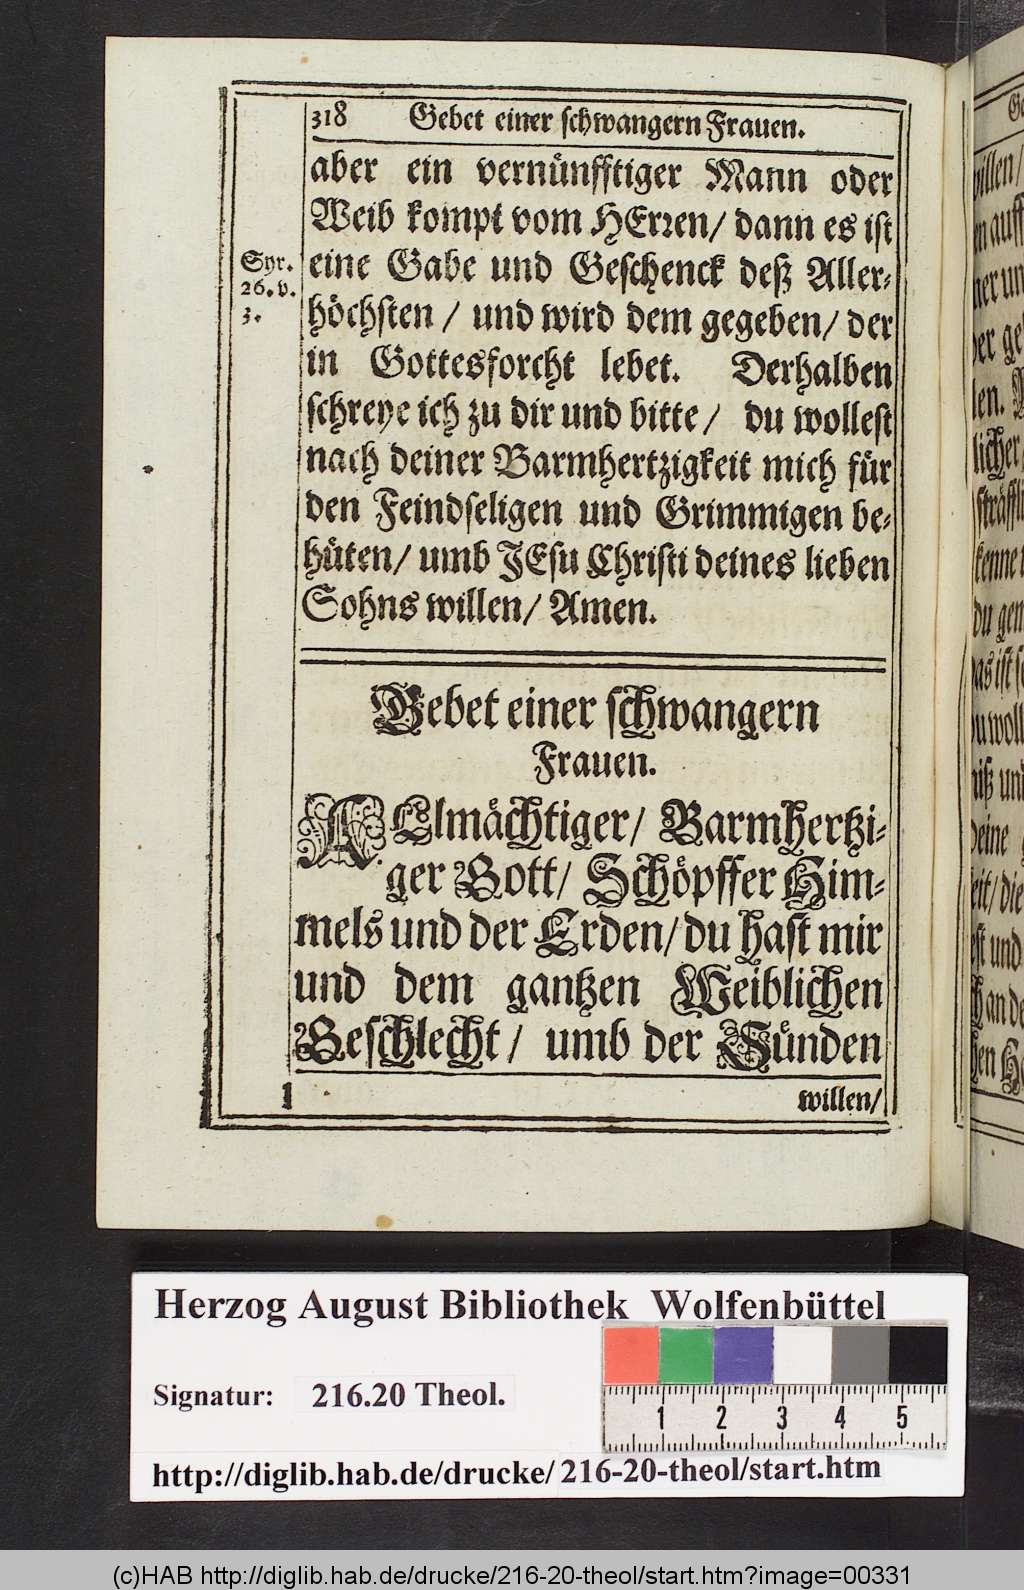 318 Gebet einer schwangern Frauen.
aber ein vernünfftiger Mann oder
Weib kompt vom HErꝛen/ dann es ist
Syr.
26. v.
3.
eine Gabe und Geschenck deß Aller-
höchsten / und wird dem gegeben/ der
in Gottesforcht lebet. Derhalben
schreye ich zu dir und bitte / du wollest
nach deiner Barmhertzigkeit mich für
den Feindseligen und Grimmigen be-
hüten/ umb JEsu Christi deines lieben
Sohns willen/ Amen.
Gebet einer schwangern
Frauen.
ALlmächtiger/ Barmhertzi-
ger Gott/ Schöpffer Him-
mels und der Erden/ du hast mir
und dem gantzen Weiblichen
Geschlecht / umb der Sünden
willen/
Herzog August Bibliothek Wolfenbüttel
Signatur: 216.20 Theol.
1 2 3 4 5
http://diglib.hab.de/drucke/216-20-theol/start.htm
(c)HAB http://diglib.hab.de/drucke/216-20-theol/start.htm?image=00331